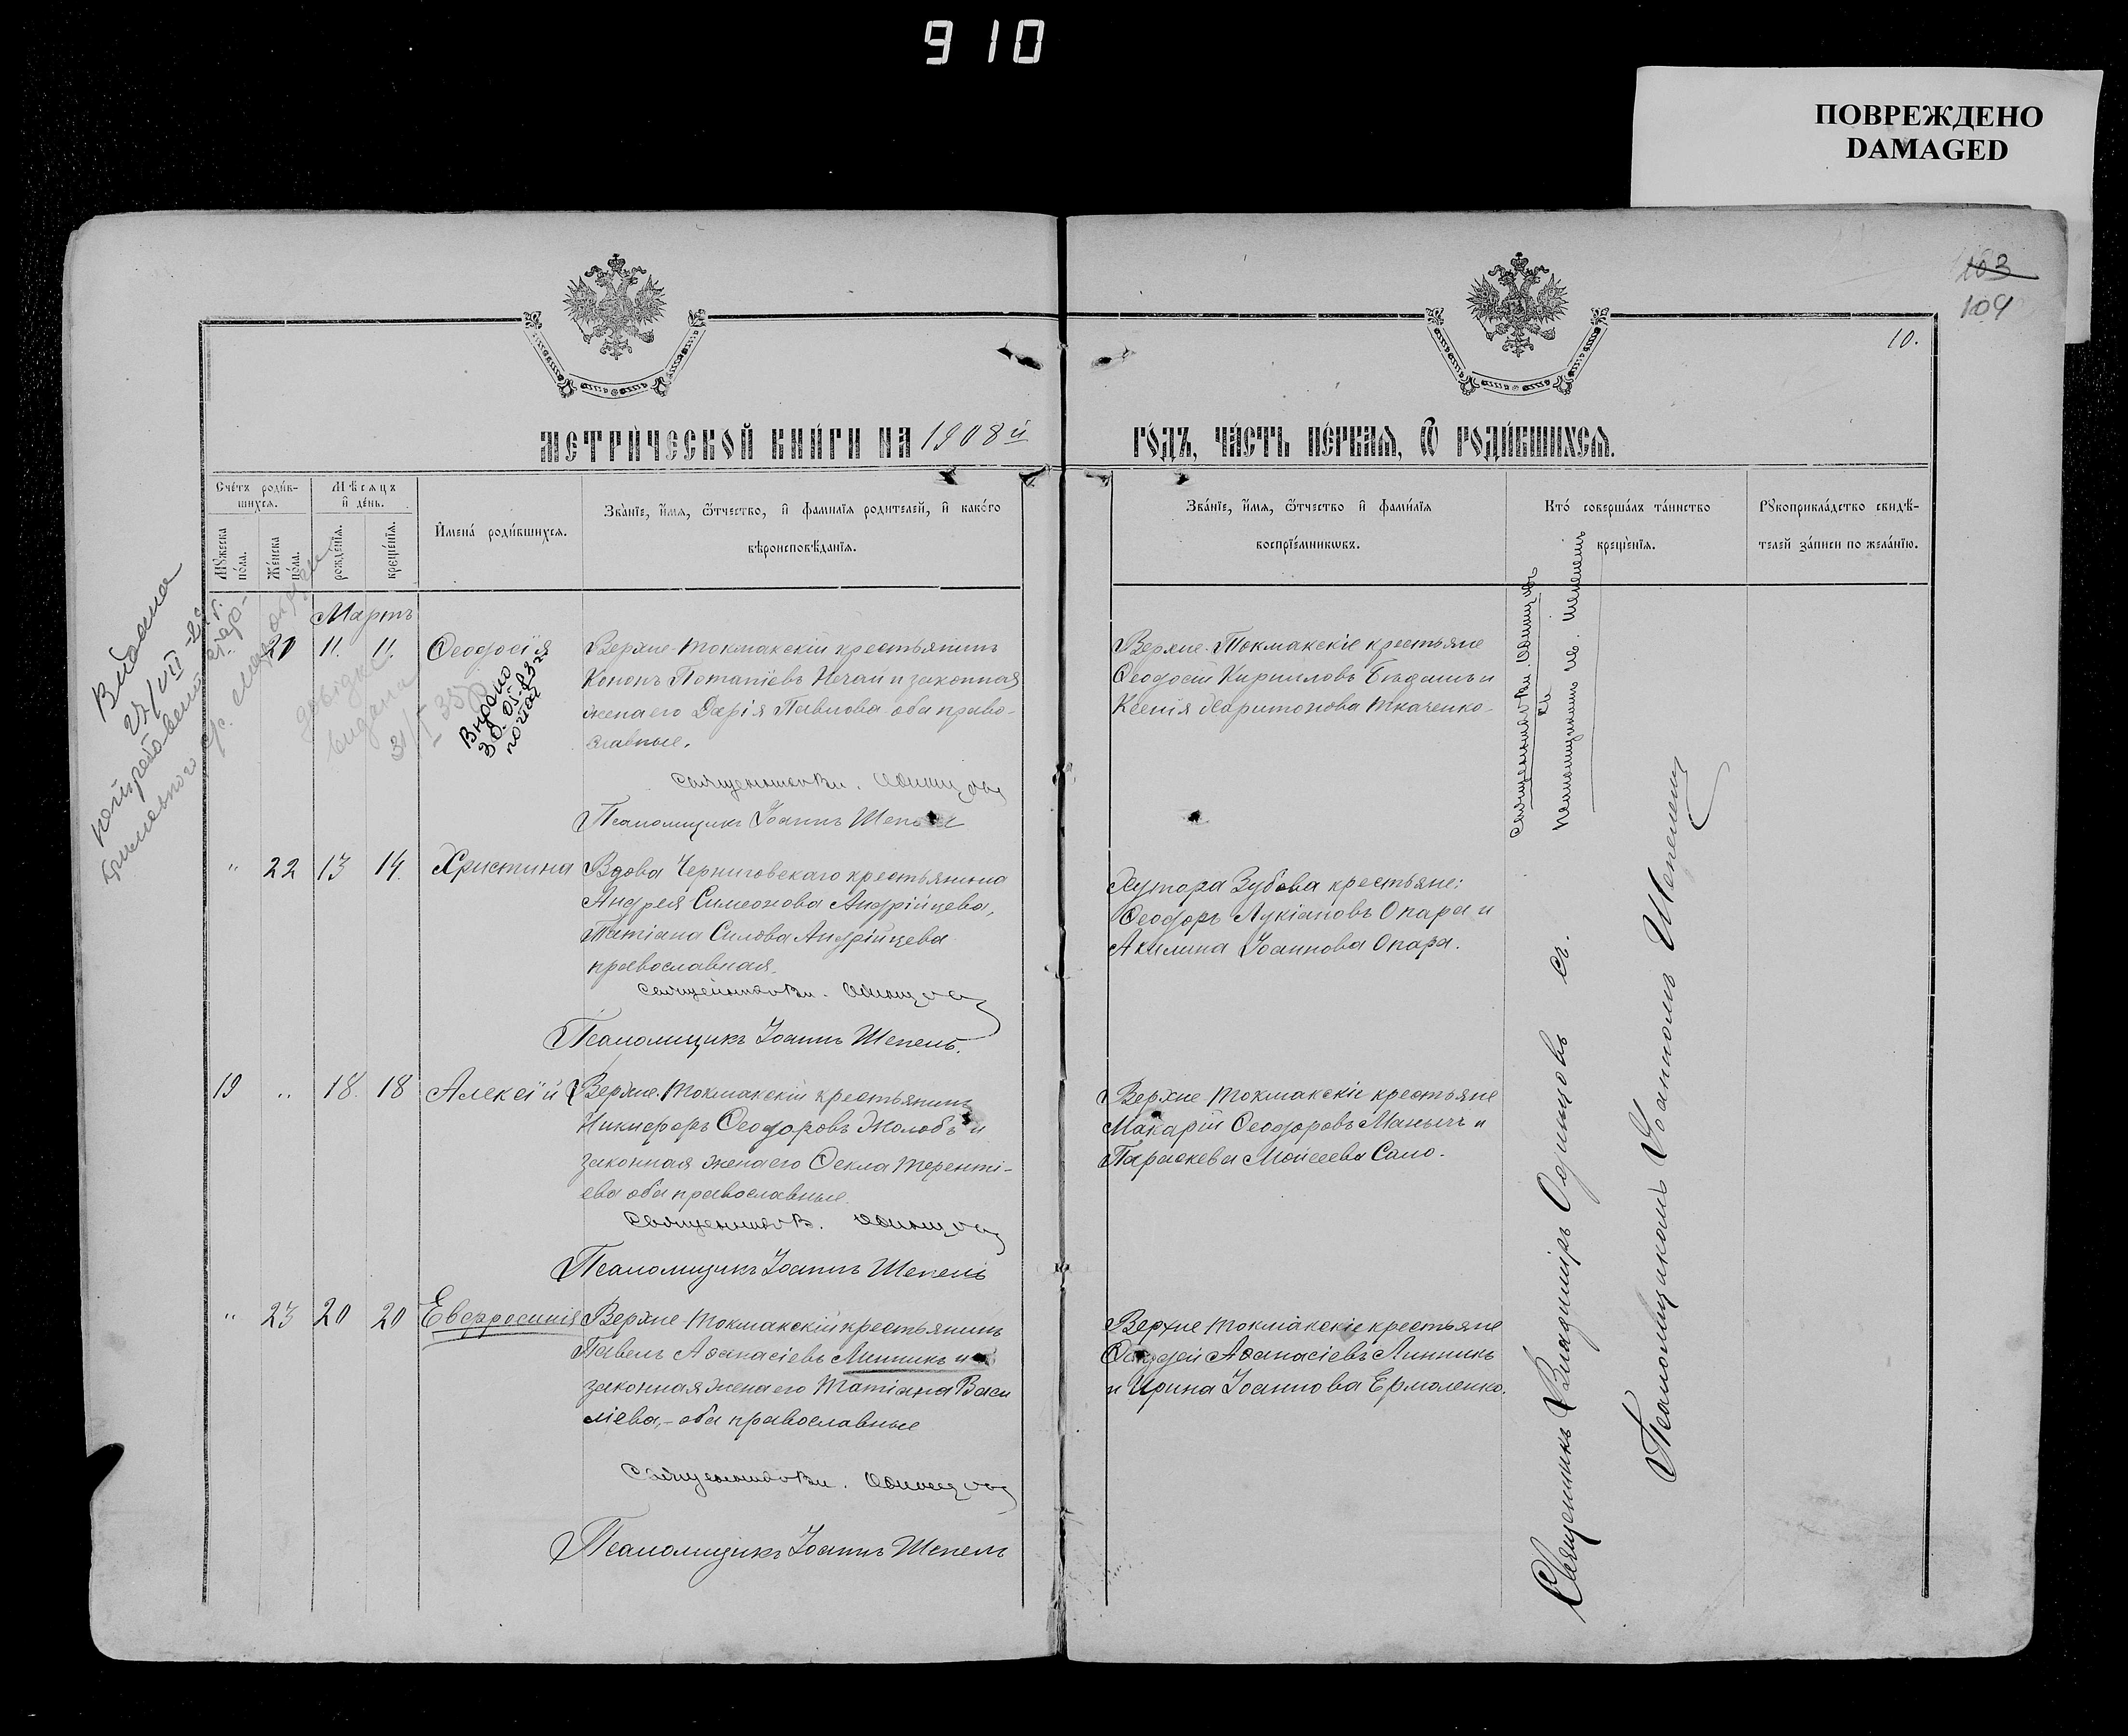 910
ПОВРЕЖДЕНО
DAMAGED
103
104
10.
МЕТРИЧЕСКОЙ КНИГИ НА 1908й
ГОДЪ, ЧАСТЬ ПЕРВАЯ, Ѿ РОДИВШИХСЯ.
Счетъ родив-
шихся.
Мужеска
пола.
Женска
пола.
Мѣсяцъ
и день.
рожденія.
крещенія.
Имена родившихся.
Званіе, имя, ѿтчество, и фамилія родителей, и какого
вѣроисповѣданія.
Званіе, имя, ѿтчество и фамилія
воспріемниковъ.
Кто совершалъ таинство
крещенія.
Рукоприкладство свидѣ-
телей записи по желанію.
Видана
27/VII
видана
31/I 35
Выдано
30.05.
Мартъ
" 21 11. 11. Ѳеодосія
Верхне-Токмакскій крестьянинъ
Кононъ Потапіевъ Нечай и законная
жена его Дарія Павлова оба право-
славные.
Священникъ Вл. Одинцовъ
Псаломщикъ Іоаннъ Шепель
Верхне-Токмакскіе крестьяне
Ѳеодосій Кирилловъ Бѣдашъ и
Ксенія Харитонова Ткаченко.
" 22 13 14. Христина
Вдова Черниговскаго крестьянина
Андрея Симеонова Андрійцева,
Татіана Силова Андрійцева
православная.
Священникъ Вл. Одинцовъ
Псаломщикъ Іоаннъ Шепель.
Хутора Зубова крестьяне:
Ѳеодоръ Лукіановъ Опара и
Акилина Іоаннова Опара.
19 " 18. 18 Алексій
Верхне-Токмакскій крестьянинъ
Никифоръ Ѳеодоровъ Жолобъ и
законная жена его Ѳекла Теренті-
ева оба православные.
Священникъ В. Одинцовъ
Псаломщикъ Іоаннъ Шепель
Верхне Токмакскіе крестьяне
Макарій Ѳеодоровъ Манычъ и
Параскева Моисеева Сало.
" 23 20 20 Евфросинія
Верхне-Токмакскій крестьянинъ
Павелъ Аѳанасіевъ Линникъ и
законная жена его Татіана Васи
ліева,- оба православные
Священникъ Вл. Одинцовъ
Псаломщикъ Іоаннъ Шепель
Верхне Токмакскіе крестьяне
Аѳанасіевъ Линникъ
и Ирина Іоаннова Ермоленко.
Священникъ Вл. Одинцовъ
съ
псаломщикомъ Ив. Шепелемъ
Священникъ Владиміръ Одинцовъ съ.
Псаломщикомъ Іоанномъ Шепелемъ